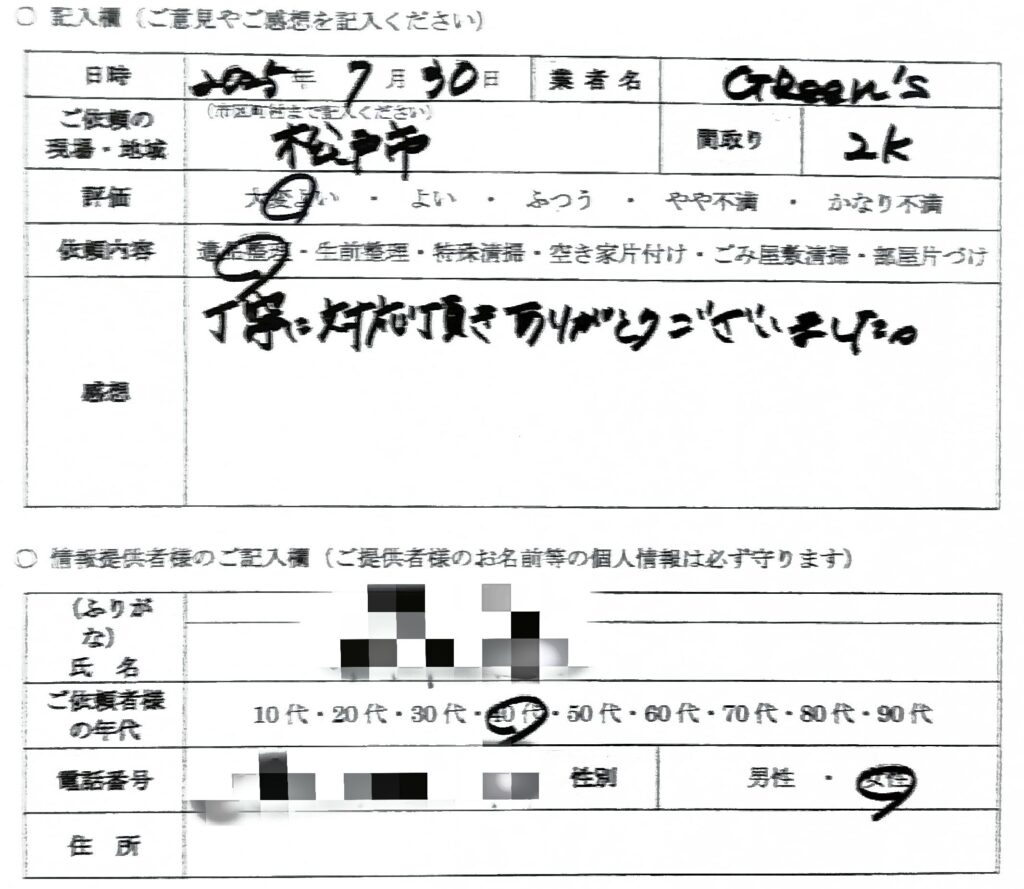 ○ 記入欄（ご意見やご感想を記入ください）
日時 2025年 7月30日 業者名 GReen's
ご依頼の現場・地域 （市区町村まで記入ください） 松戸市 間取り 2K
評価 大変よい ・ よい ・ ふつう ・ やや不満 ・ かなり不満
依頼内容 遺品整理・生前整理・特殊清掃・空き家片付け・ごみ屋敷清掃・部屋片づけ
感想 丁寧に対応頂きありがとうございました。
○ 情報提供者様のご記入欄（ご提供者様のお名前等の個人情報は必ず守ります）
（ふりがな）
氏 名
ご依頼者様の年代 10代・20代・30代・40代・50代・60代・70代・80代・90代
電話番号 性別 男性 ・ 女性
住 所